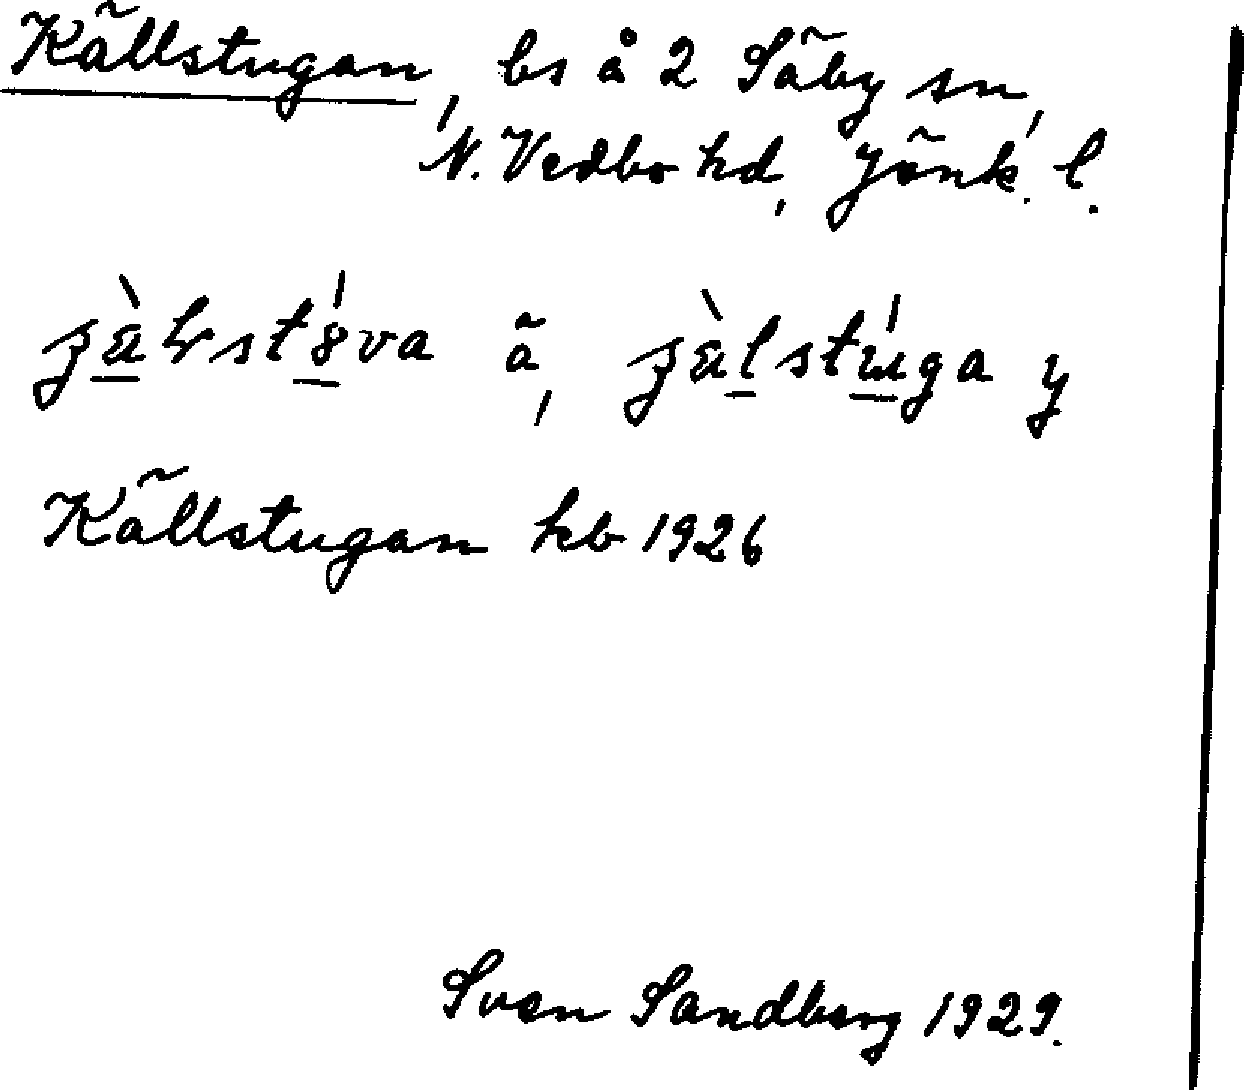 Källstugan, bs å 2 Säby sn,
N. Vedbo hd, Jönk. l.
ä, y
Källstugan kb 1926
Sven Sandberg 1929.